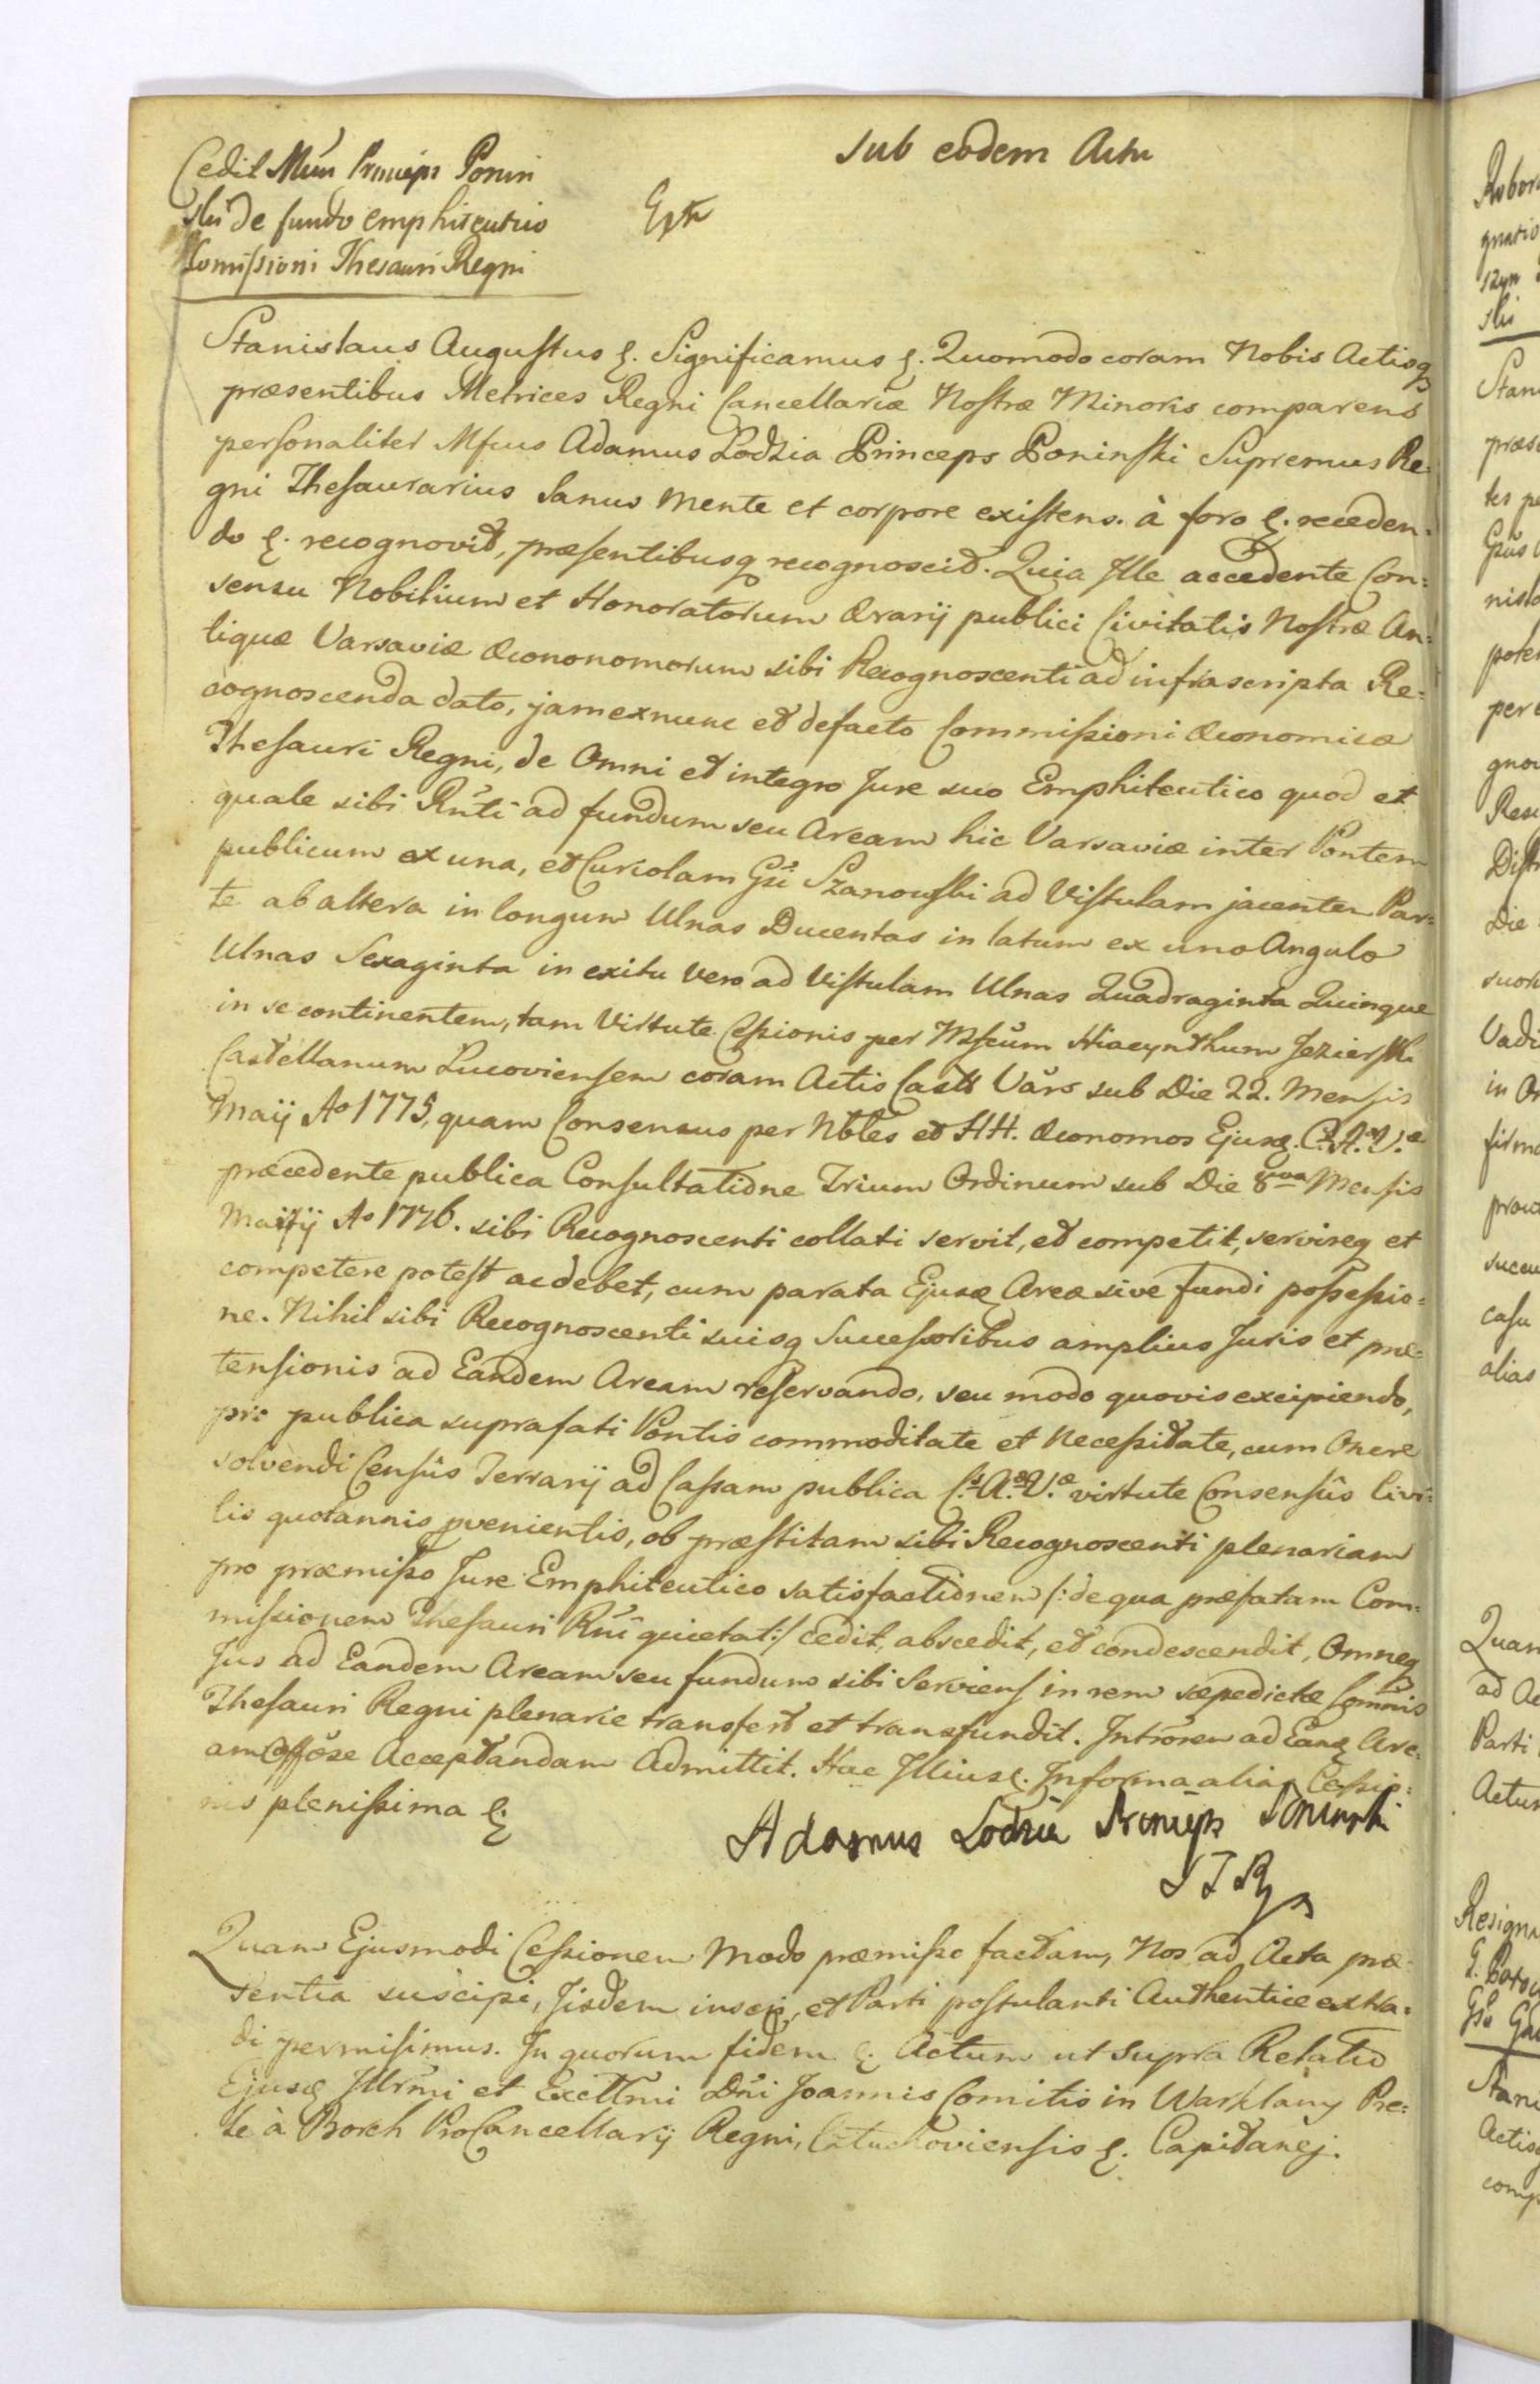 sub eodem Actu
Cedit Mcus Princeps Ponin
ski de fundo emphiteutico
Comissioni Thesauri Regni
Extr
Stanislaus Augustus &. Significamus &. Quomodo coram Nobis Actisq
præsentibus Metrices Regni Cancellariæ Nostræ Minoris comparens
personaliter Mfcus Adamus Lodzia Princeps Poninski Supremus Re:
gni Thesaurarius Sanus Mente et corpore existens. à foro &. receden:
do &. recognovit, præsentibusq recognoscit. Quia Ille accedente Con:
sensu Nobilium et Honoratorum Ærarij publici Civitatis Nostræ An:
tiquæ Varsaviæ Œcononomorum sibi Recognoscenti ad infrascripta Re:
cognoscenda dato, jam exnunc et defacto Commissioni Œconomicæ
Thesauri Regni, de Omni et integro Jure suo Emphiteutico quod et
quale sibi Rnti ad fundum seu Aream hic Varsaviæ inter Pontem
publicum ex una, et Curiolam Gsi Szanowski ad Vistulam jacentem Par:
te ab altera in longum Ulnas Ducentas in latum ex uno Angulo
Ulnas Sexaginta in exitu vero ad Vistulam Ulnas Quadraginta Quinque
in se continentem, tam Virtute Cessionis per Mfcum Hiacynthum Jezierski
Castellanum Lucoviensem coram Actis Castr Vars sub Die 22. Mensis
Maij Ao 1775, quam Consensus per Nbles et HH. Œconomos Ejusq. C.s A.æ V.æ
præcedente publica Consultatione Trium Ordinum sub Die 8va Mensis
Maij Ao 1776. sibi Recognoscenti collati servit, et competit, servireq et
competere potest ac debet, cum parata Ejusq Areæ sive fundi possessio:
ne. Nihil sibi Recognoscenti suisq Successoribus amplius Juris et præ:
tensionis ad Eandem Aream reservando, seu modo quovis excipiendo,
pro publica suprafati Pontis commoditate et Necessitate, cum Onere
solvendi Censûs Terrarij ad Cassam publica C.s A.æ V.æ virtute Consensûs Civi:
lis quotannis pvenientis, ob præstitam sibi Recognoscenti plenariam
pro præmisso Jure Emphiteutico satisfactionem /: de qua præfatam Com:
missionem Thesauri Rni quietat :/ cedit, abscedit, et condescendit, Omneq
Jus ad Eandem Aream seu fundum sibi Serviens in rem sæpedictæ Commis
Thesauri Regni plenarie transfert et transfundit. Introm ad Eanq Are:
am Acceptandam Admittit. Hac Illius &. In forma alias Cessio:
nis plenissima &
Adamus Lodzia Princeps Poninski
S T R
Quam Ejusmodi Cessionem Modo præmisso factam, Nos ad Acta præ:
sentia suscipi, Jisdem inscribi, et Parti postulanti Authentice extra:
di permisimus. In quorum fidem &. Actum ut supra Relatio
Ejusq Illrmi et Excellmi Dni Joannis Comitis in Warklany Pre:
le à Borch ProCancellarij Regni, &. Capitanej.